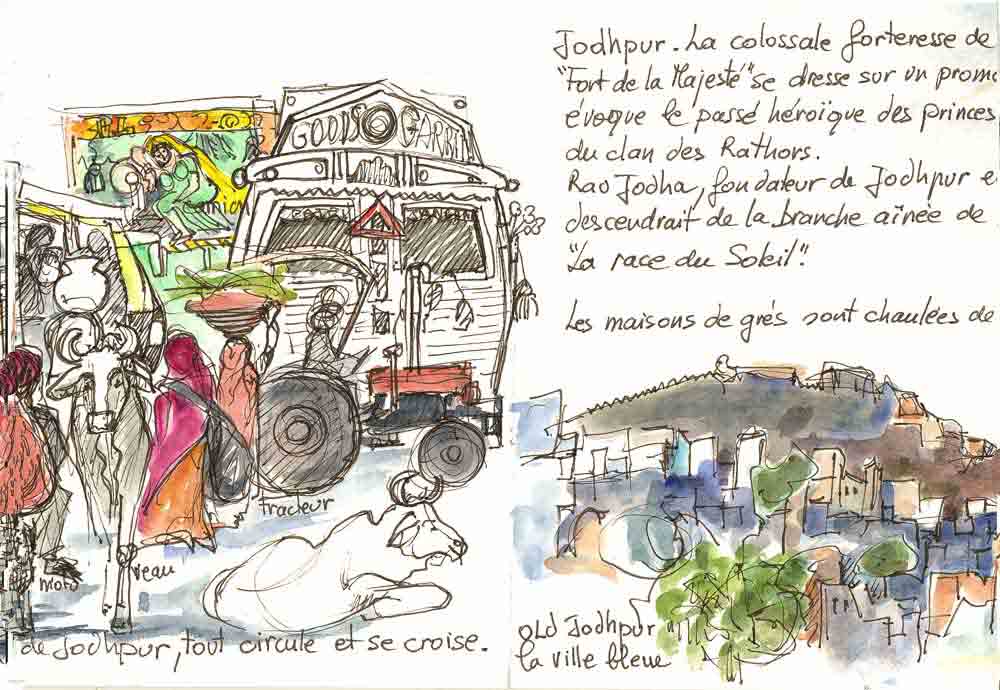 GOODS GARRIER
camion
tracteur
moto
veau
de Jodhpur, tout circule et se croise.
Jodhpur. La colossale forteresse de
"Fort de la Majesté" se dresse sur un promo
évoque le passé héroïque des princes
du clan des Rathors.
Rao Jodha, fondateur de Jodhpur e
descendrait de la branche aînée de
"La race du Soleil".
Les maisons de grés sont chaulées de
OLD Jodhpur
la ville bleue